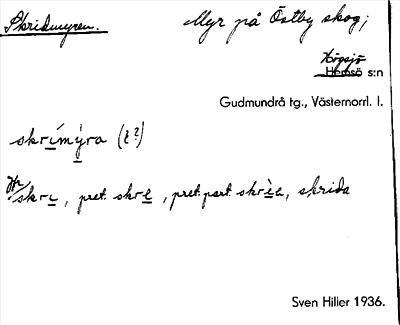 Skridmyren. Myr på Östby skog;
Högsjö
Hemsö s:n
Gudmundrå tg., Västernorrl. l.
skrímýra (í?)
Jfr skrı, pret. skre, pret. part. skrèe, skrida
Sven Hiller 1936.